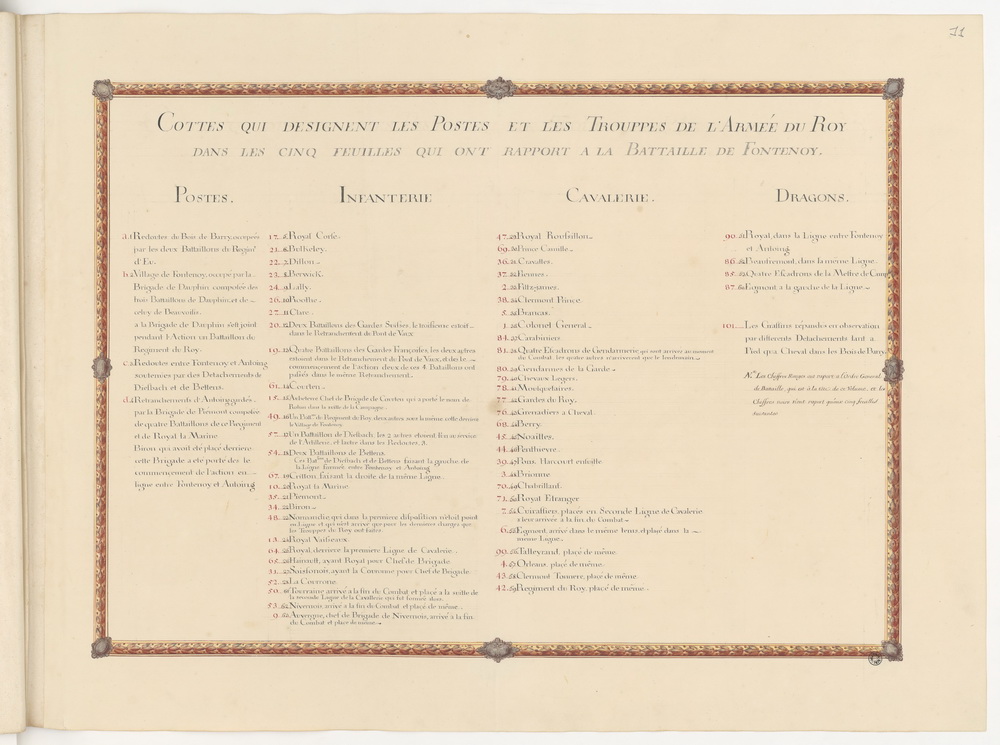 COTTES QUI DESIGNENT LES POSTES ET LES TROUPPES DE L'ARMEÉ DU ROY
DANS LES CINQ FEUILLES QUI ONT RAPPORT A LA BATTAILLE DE FONTENOY.
POSTES.
Redoutes du Bois de Barry, occupées
par les deux Battaillons du Regim.t
d'Eu.
Village de Fontenoy, occupé par la
Brigade de Dauphin composée des
trois Battaillons de Dauphin, et de
celuy de Beauvoisis.
a la Brigade de Dauphin s'est joint
pendant l'Action un Battaillon du
Regiment du Roy.
Redoutes entre Fontenoy et Antoing
soutenues par des Détachements de
Diesbach et de Bettens.
Retranchements d'Antoing gardés
par la Brigade de Piemont composée
de quatre Battaillons de ce Regiment
et de Royal la Marine
Biron qui avoit été placé derriere
cette Brigade a été porté dès le
commencement de l'action en
ligne entre Fontenoy et Antoing
INFANTERIE
17. Royal Corse.
21. Bulkeley.
22. Dillon
23. Berwick.
24. Lally.
26. Roothe
27. Clare
20. Deux Battaillons des Gardes Suisses, le troisieme estoit
dans le Retranchement du Pont de Vaux
19. Quatre Battaillons des Gardes Françoises, les deux autres
estoient dans le Retranchement du Pont de Vaux, et dès le
commencement de l'action deux de ses 4 Battaillons ont
passés dans le même Retranchement.
61. Courten
15. Aubeterre Chef de Brigade de Courten qui a porté le nom de
dans la suitte de la Campagne.
49. Un Batt.on du Regiment du Roy, deux autres sous le même cotte derriere
le Village de Fontenoy.
57. Un Battaillon de Diesbach, les 2 autres étoient l'un au service
de l'Artillerie, et l'autre dans les Redoutes. 3.
54. Deux Battaillons de Bettens.
Ces Batt.ons de Diesbach et de Bettens faisant la gauche de
la Ligne formée entre Fontenoy et Antoing
67. Crillon, faisant la droite de la même Ligne.
16. Royal la Marine.
35. Piemont
34. Biron
48. Normandie, qui dans la premiere disposition n'étoit point
en Ligne et qui n'est arrivé que pour les dernieres charges que
les Trouppes du Roy ont faites.
13. Royal Vaisseaux.
64. Royal, derriere la premiere Ligne de Cavalerie.
65. Hainault, ayant Royal pour Chef de Brigade.
31. Soissonois, ayant la Couronne pour Chef de Brigade
52. La Couronne.
50. Touraine arrivé a la fin du Combat et placé a la suitte de
la seconde Ligne de la Cavallerie qui fut formée alors.
53. Nivernois, arrivé a la fin du Combat et placé de même.
9. Auvergne, chef de Brigade de Nivernois, arrivé a la fin
du Combat et placé de même
CAVALERIE.
47. Royal Roussillon
69. Prince Camille
36. Cravattes
37. Fiennes
2. Fitzjames.
38. Clermont Prince.
5. Brancas.
1. Colonel General
84. Carabiniers
81. Quatre Escadrons de Gendarmerie, qui sont arrivés au moment
du Combat, les quatre autres n'arriverent que le lendemain
80. Gendarmes de la Garde
79. Chevaux Legers.
78. Mousquetaires.
77. Gardes du Roy.
76. Grenadiers a Cheval.
68. Berry.
45. Noailles.
44. Penthievre.
39. Pons, Harcourt ensuitte.
3. Brionne
70. Chabrillant.
71. Royal Etranger
7. Cuirassiers, placés en Seconde Ligne de Cavalerie
a leur arrivée a la fin du Combat
6. Egmont, arrivé dans le même tems, et placé dans la
même Ligne
99. Talleyrand, placé de même
4. Orleans, placé de même.
43. Clermont Tonnere, placé de même
42. Regiment du Roy, placé de même.
DRAGONS.
90. Royal, dans la Ligne entre Fontenoy
et Antoing
86. Beaufremont, dans la même Ligne.
85. Quatre Escadrons de la Mestre de Camp
87. Egmont, a la gauche de la Ligne
101. Les Grassins répandus en observation
par differents Detachements tant a
Pied qu'a Cheval dans les Bois de Barry.
N.ta Les Chiffres Rouges ont raport a l'Ordre General
de Bataille, qui est a la tête de ce Volume, et les
Chiffres noirs n'ont raport qu'aux cinq feuilles
suivantes